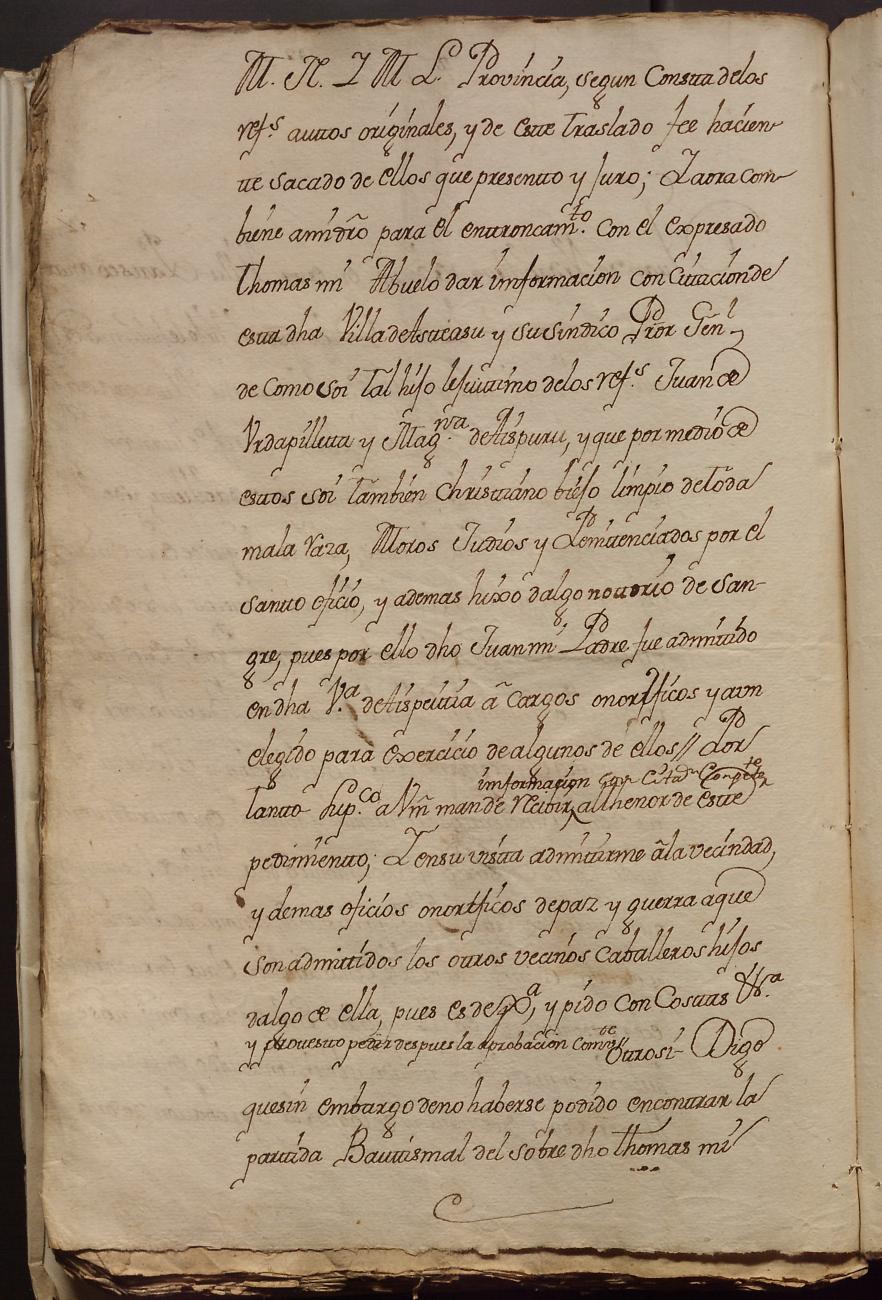 M. N. Y M. L. Provincia, segun Consta de los
ref.s auttos originales, y de este traslado fee hacien-
tte sacado de ellos que presentto y Juro; Y aora com-
biene a mi dro para el enttroncam.to con el expresado
Thomas mi Abuelo dar imformacion con Cittacion de
estta dha Villa de Asteasu y su sindico Pror Gen.l
de como soi tal hijo lejittimo de los ref.s Juan de
Urdapilletta y Mag.na de Aispuru, y que por medio de
esttos soi tambien Christtiano biejo limpio de toda
mala raza, Moros Judios y Penittenciados por el
santto oficio, y ademas hixo dalgo nottorio de San-
gre, pues por ello dho Juan mi Padre fue admittido
en dha V.a de Aspeittia a cargos onorificos y aun
elegido para exercicio de algunos de ellos // Por
imformacion con Citta.n Comp.te
tantto Sup.co a Vm mande recibir al thenor de este
pedimentto; Y en su vista admitirme a la vecindad,
y demas oficios onorificos de paz y guerra a que
son admittidos los ottros vecinos Caballeros hijos
dalgo de ella, pues es de Jx.a, y pido con Costtas &.a
y prottestto pedir despues la aprobacion
Ottrosi Digo
que sin embargo de no haberse podido enconttrar la
parttida Bauttismal del sobre dho Thomas mi